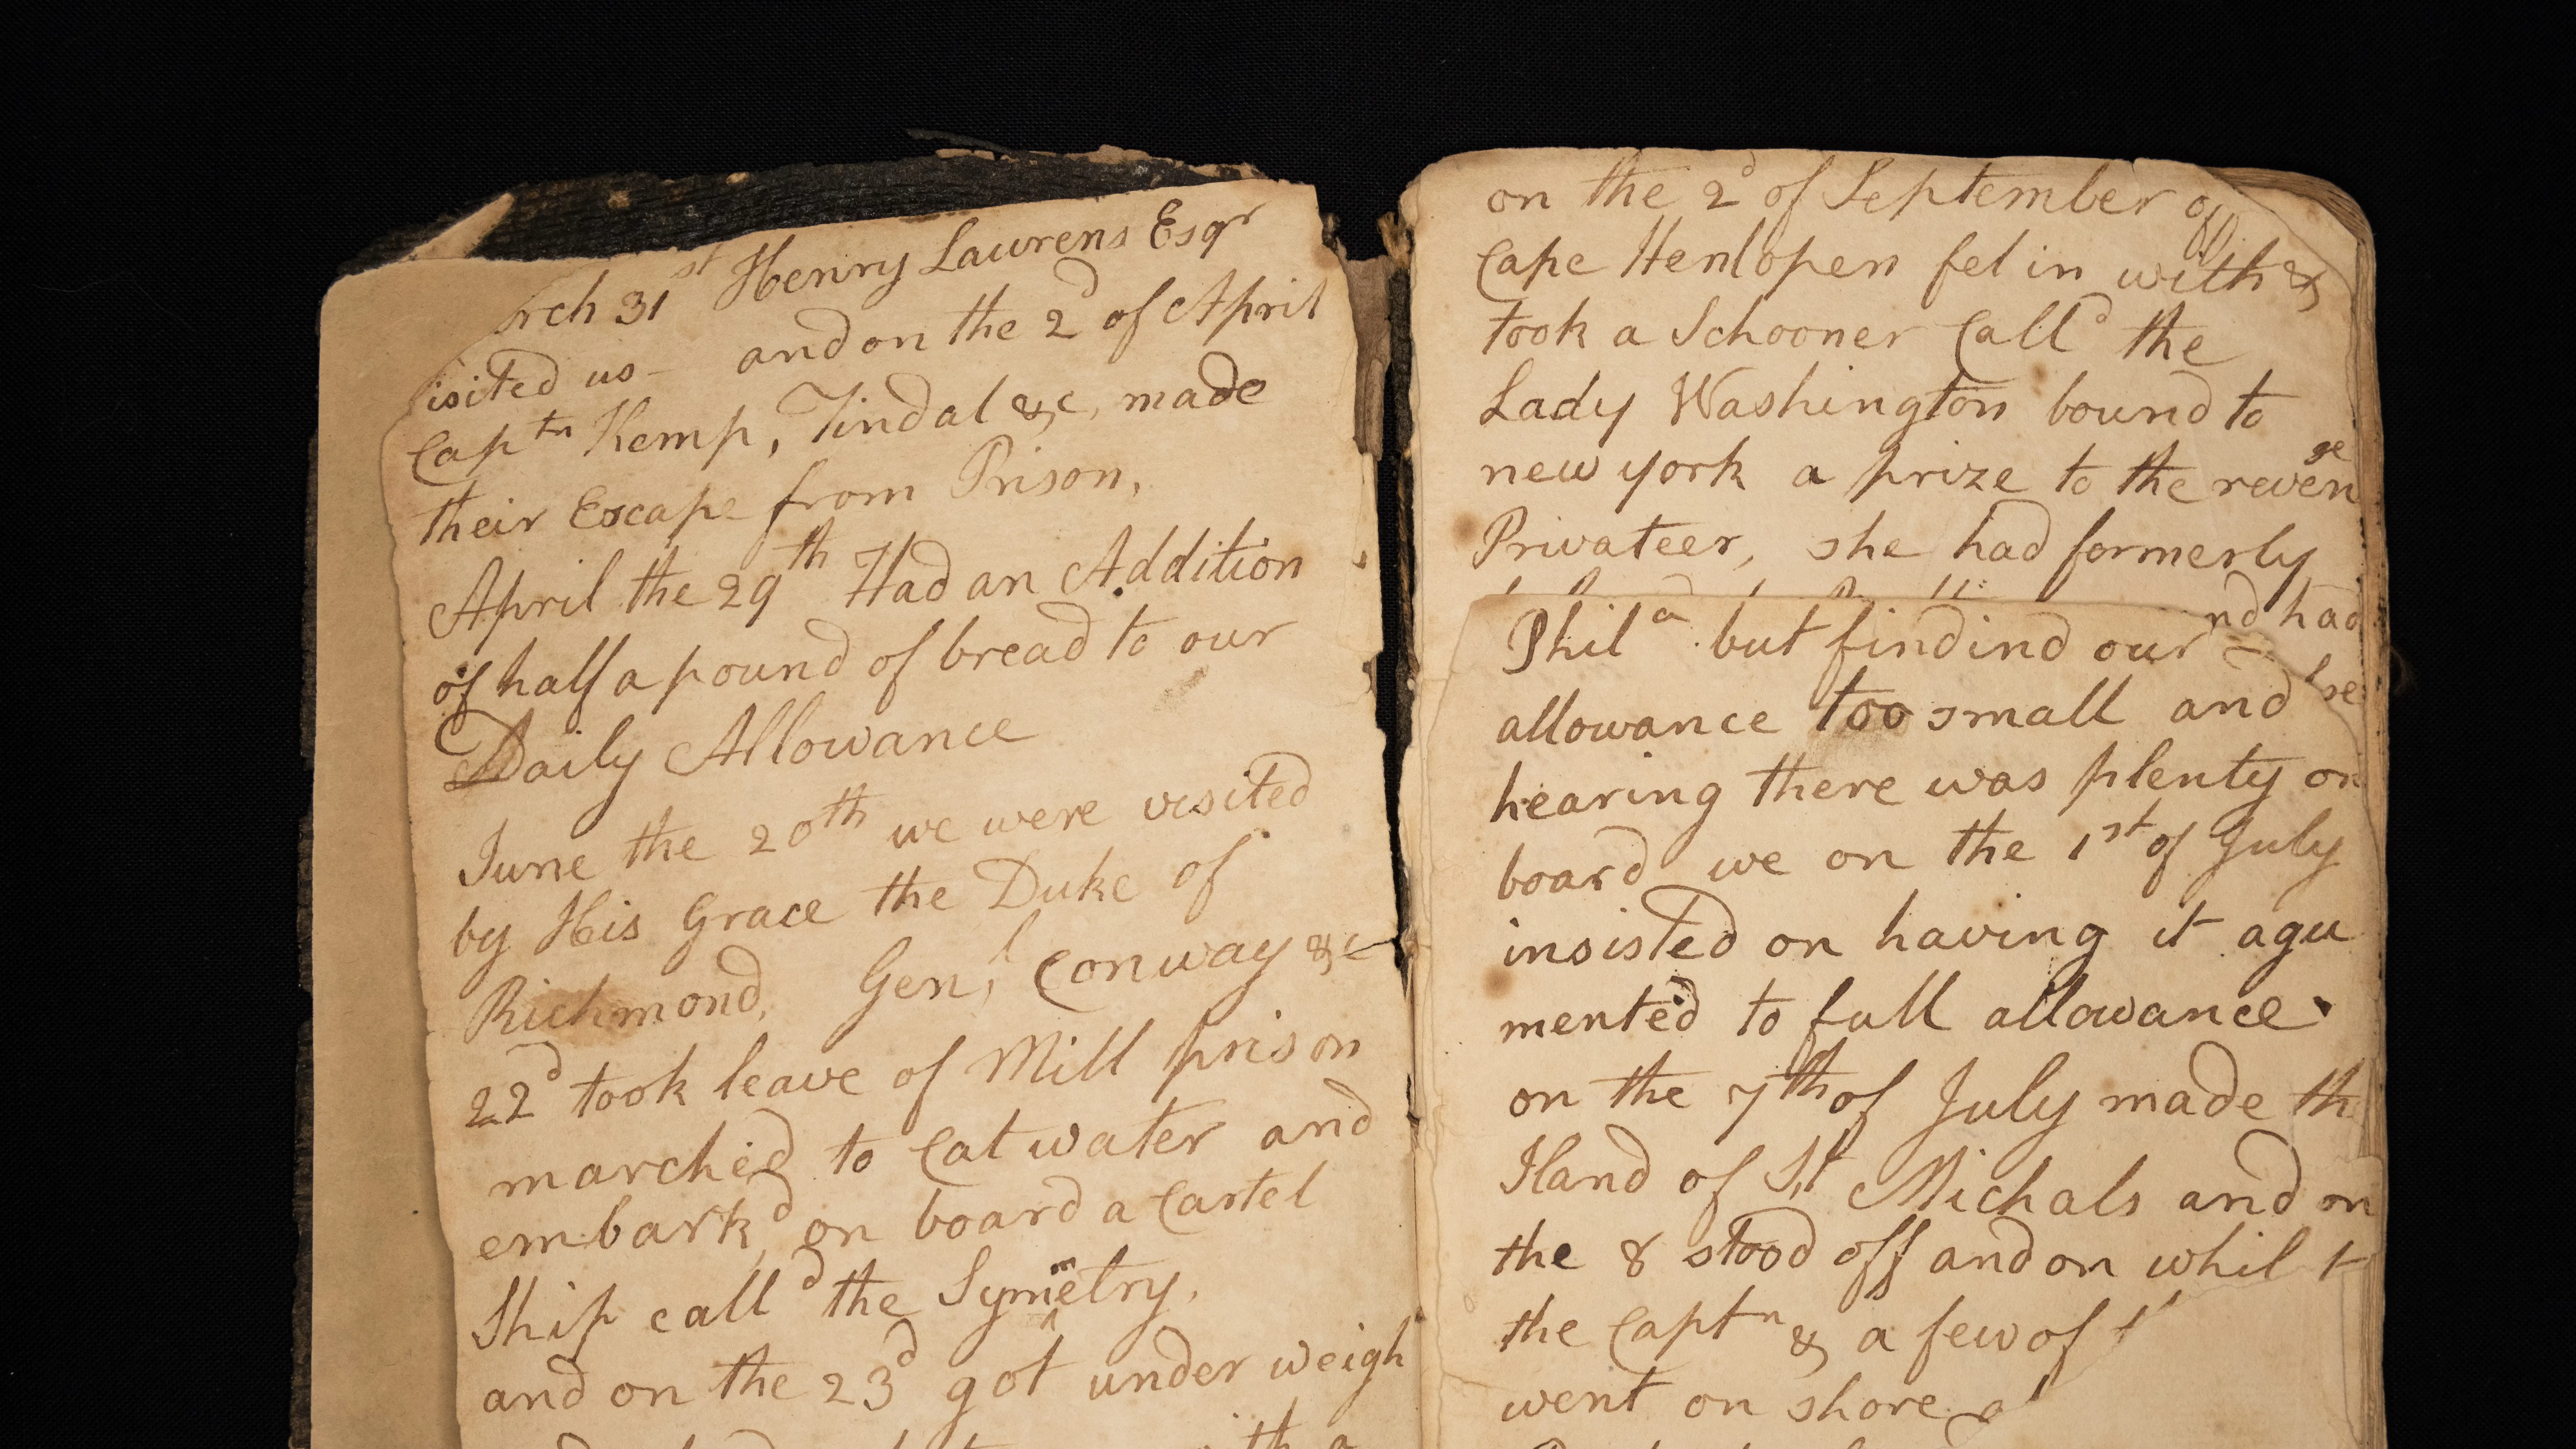 rch 31st Henry Laurens Esqr
isited us – and on the 2d of April
Captn Kemp, Tindal &c, made
their Escape from Prison,
April the 29th Had an Addition
of half a pound of bread to our
Daily Allowance
June the 20th we were visited
by His Grace the Duke of
Richmond, Genl, Conway &c
22d took leave of Mill prison
marched to Catwater and
embark,d on board a Cartel
Ship calld the Symmetry,
and on the 23d got under weigh
on the 2d of September off
Cape Henlopen fel in with &
took a Schooner Calld the
Lady Washington bound to
new york a prize to the revenge
Privateer, she had formerly
nd had
Phila. but findind our
allowance too small and
hearing there was plenty on
board we on the 1st of July
insisted on having it agu
mented to full allowance
on the 7th of July made th
Iland of St Michals and on
the 8 stood off and on whil
the Captn & a few of
went on shore